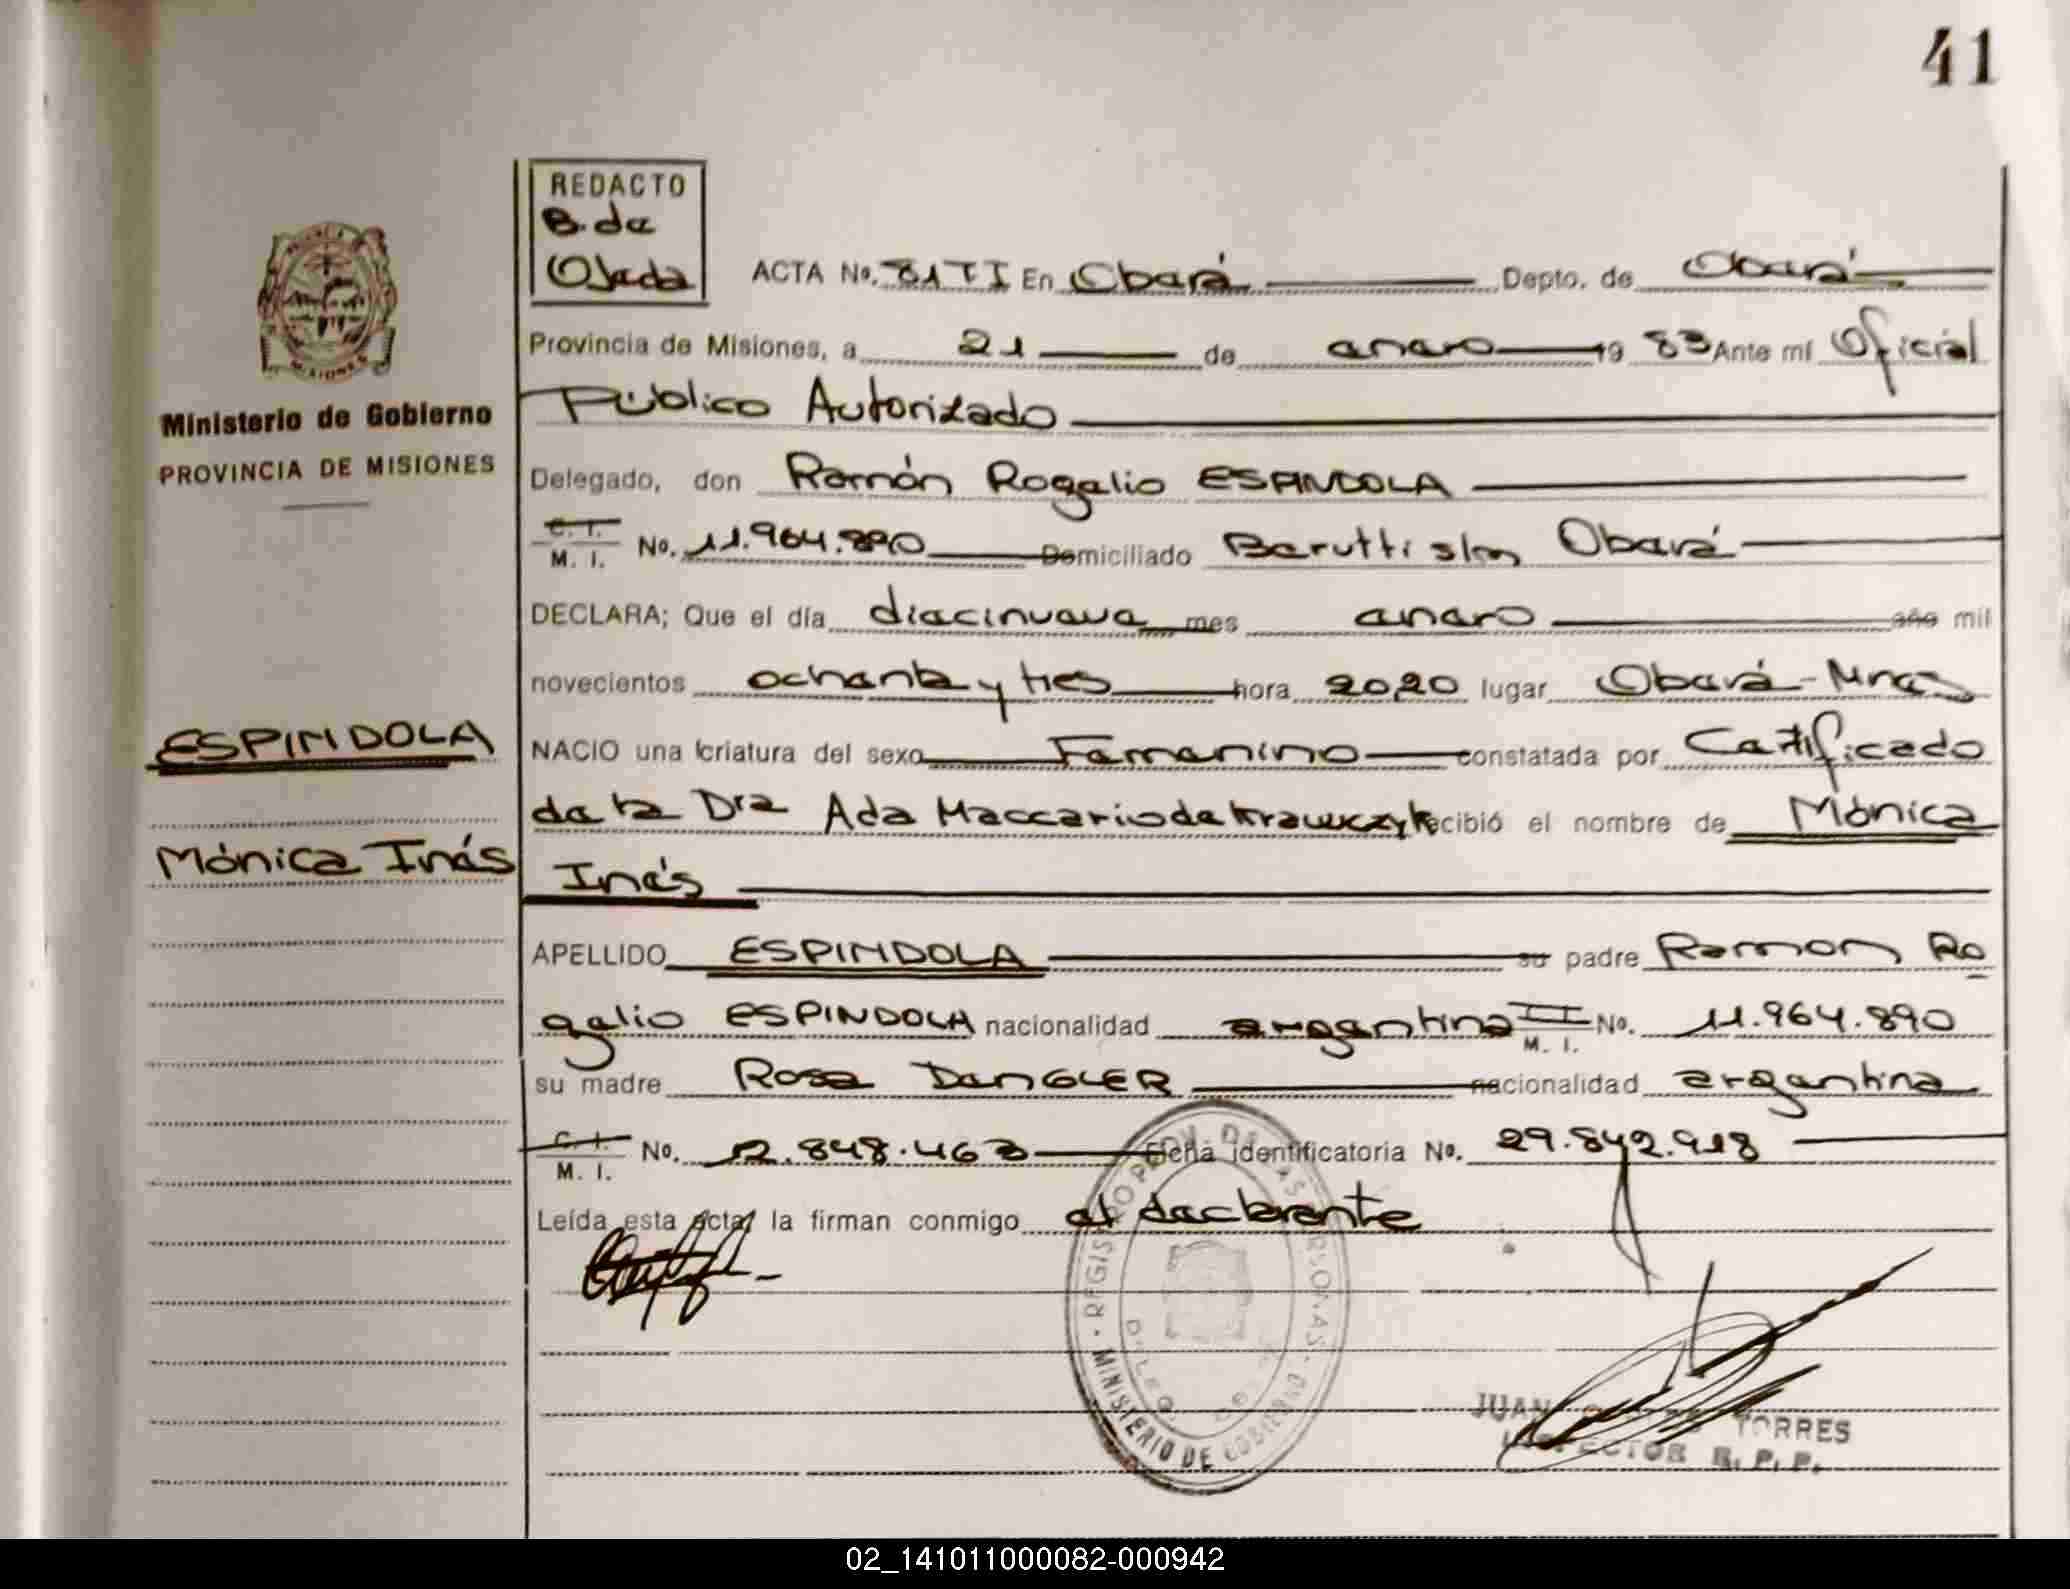 41
REDACTO
B. de
Ojeda
ACTA No. 81 T I En Oberá Depto. de Oberá
Provincia de Misiones, a 21 de enero 19 83 Ante mí Oficial
Público Autorizado
Ministerio de Gobierno
PROVINCIA DE MISIONES
Delegado, don Ramón Rogelio ESPINDOLA
C. I.
M. I. No. 11.964.890 Domiciliado Berutti s/n Oberá
DECLARA; Que el día diecinueve mes enero año mil
novecientos ochenta y tres hora 20,20 lugar Oberá - Mnes
ESPINDOLA
NACIO una criatura del sexo Femenino constatada por Certificado
de la Dra Ada Maccario de Krawczyk recibió el nombre de Mónica
Mónica Inés
Inés
APELLIDO ESPINDOLA su padre Ramon Ro
gelio ESPINDOLA nacionalidad argentina M. I. No. 11.964.890
su madre Rosa DANGLER nacionalidad argentina
C. I.
M. I. No. 12.848.463 Ficha identificatoria No. 29.842.918
Leída esta acta, la firman conmigo el declarante
REGISTRO PROV. DE LAS PERSONAS
MINISTERIO DE GOBIERNO
JUAN TORRES
INSPECTOR R. P. P.
02_141011000082-000942